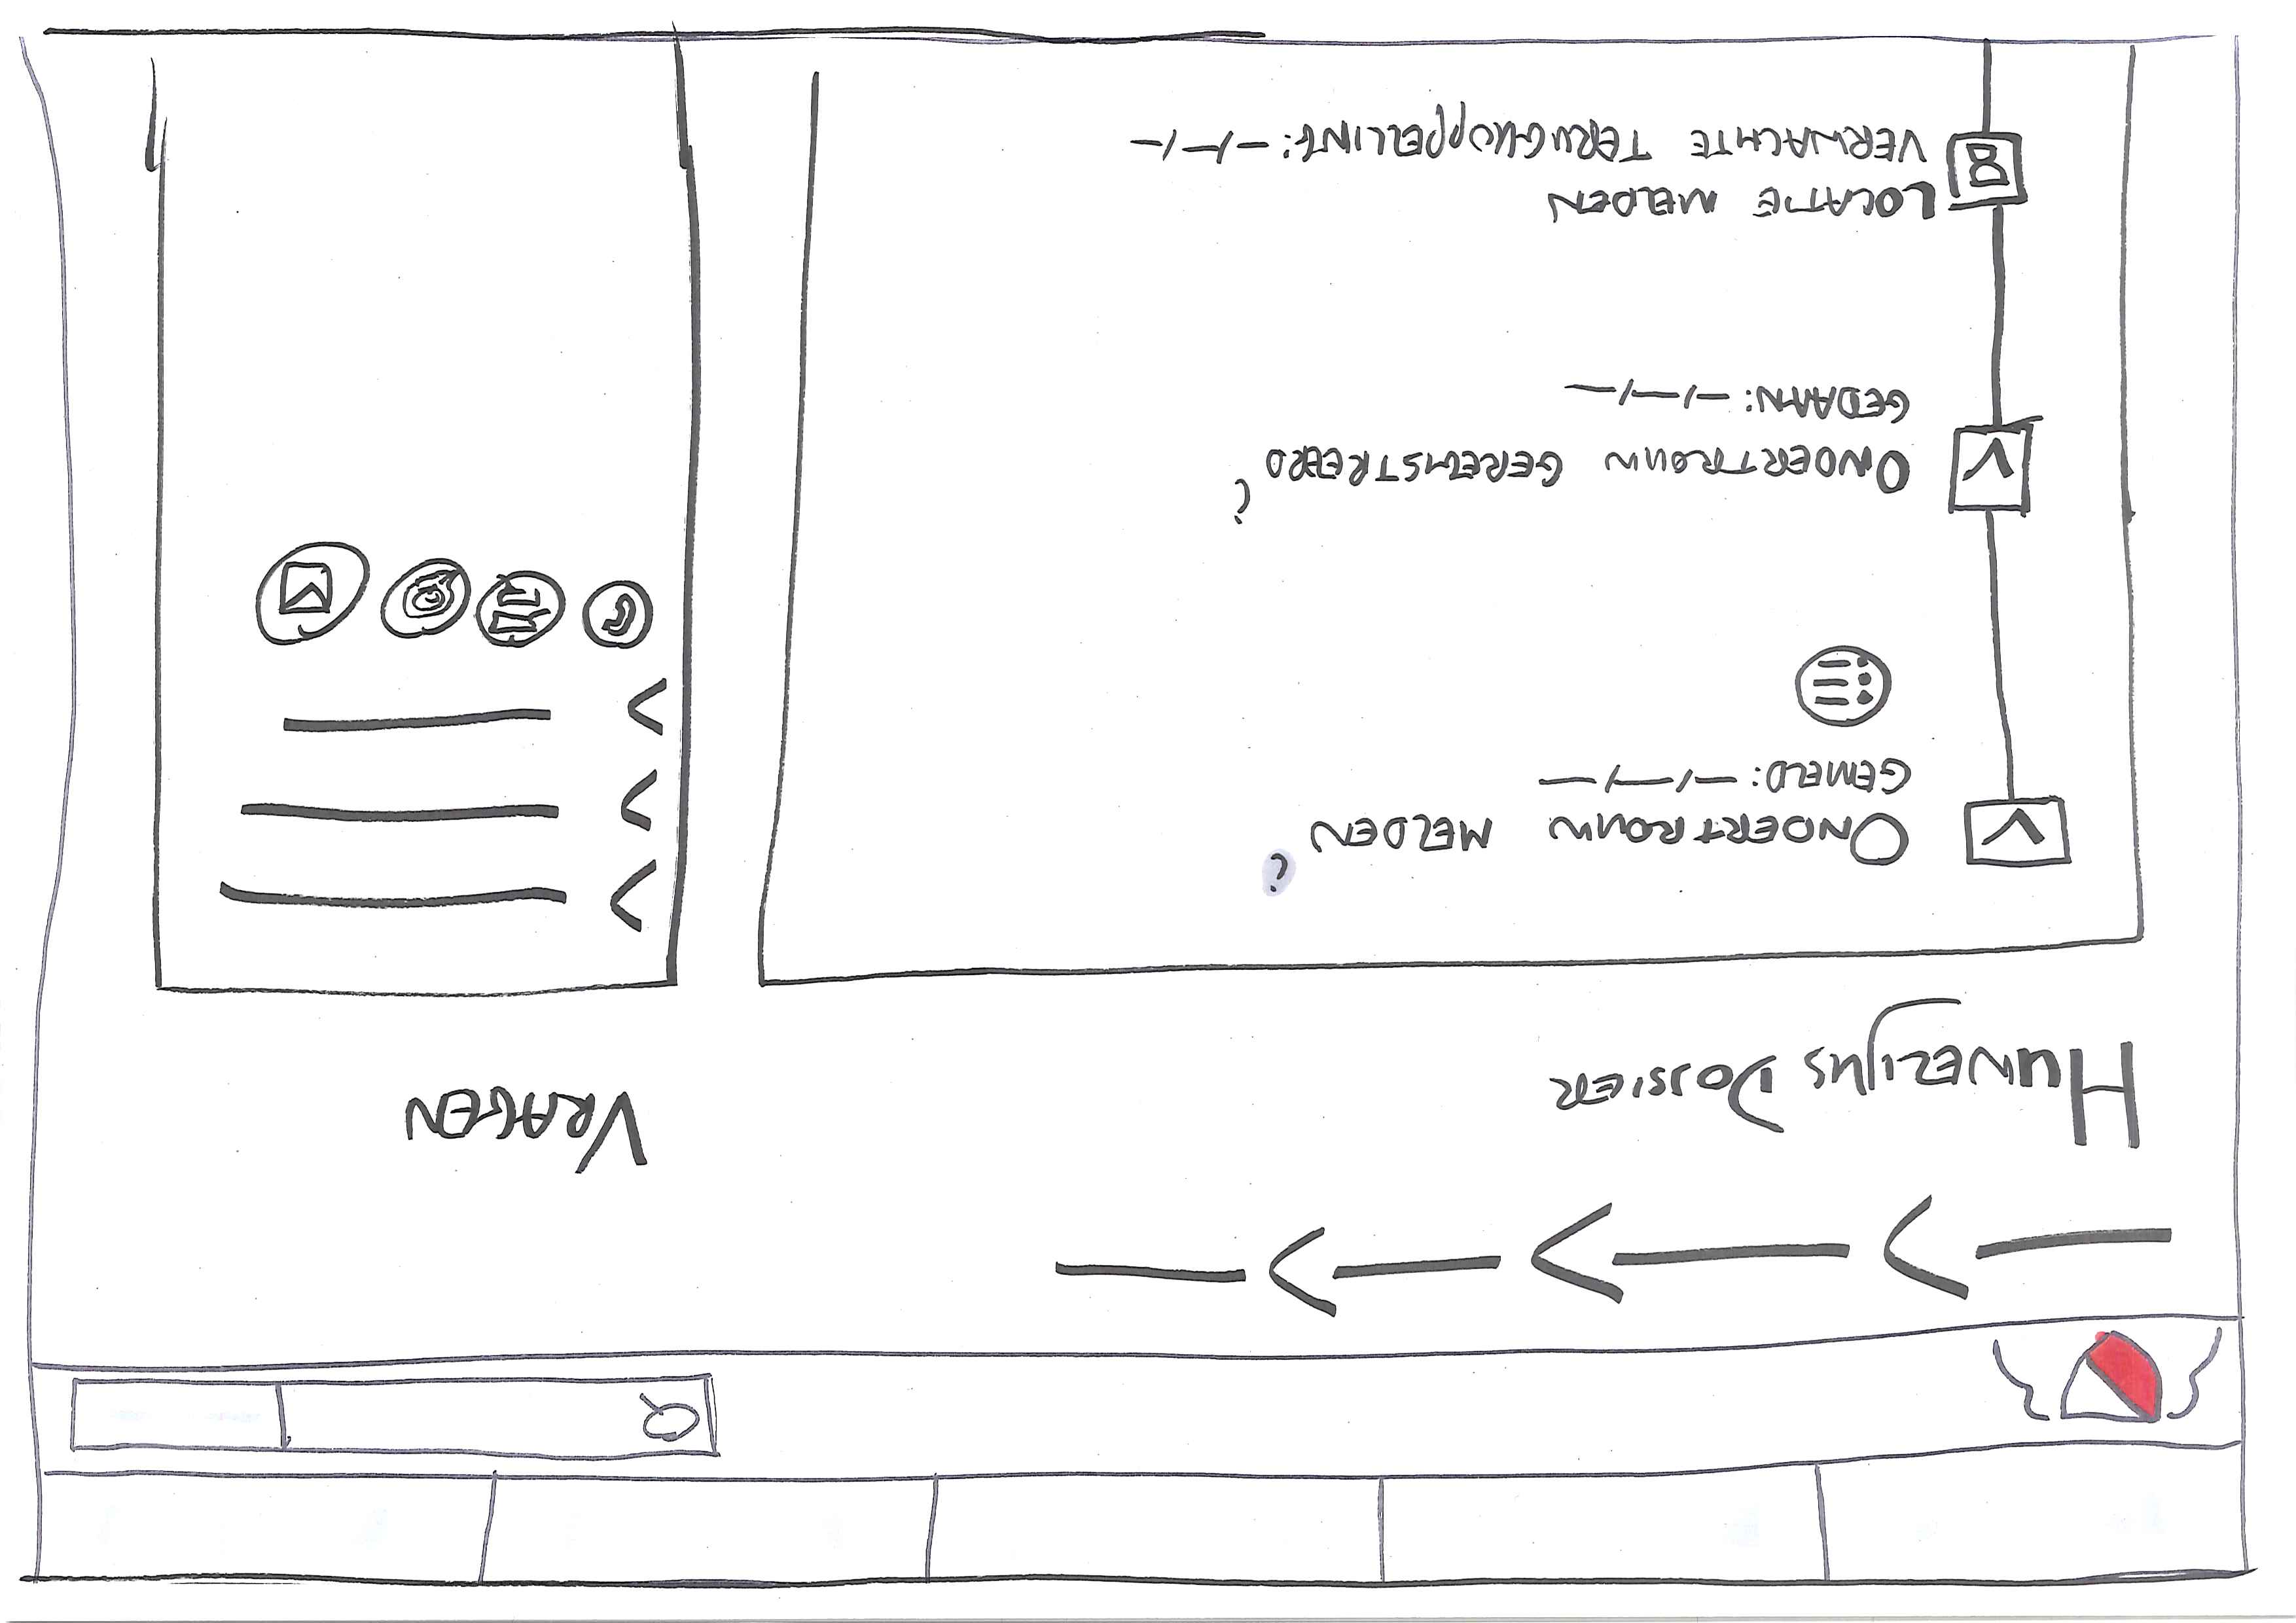 HUWELIJKS DOSSIER
VRAGEN
ONDERTROUW MELDEN ?
GEMELD: —/—/—
ONDERTROUW GEREGISTREERD ?
GEDAAN: —/—/—
LOCATIE MELDEN
VERWACHTE TERUGKOPPELLING: —/—/—